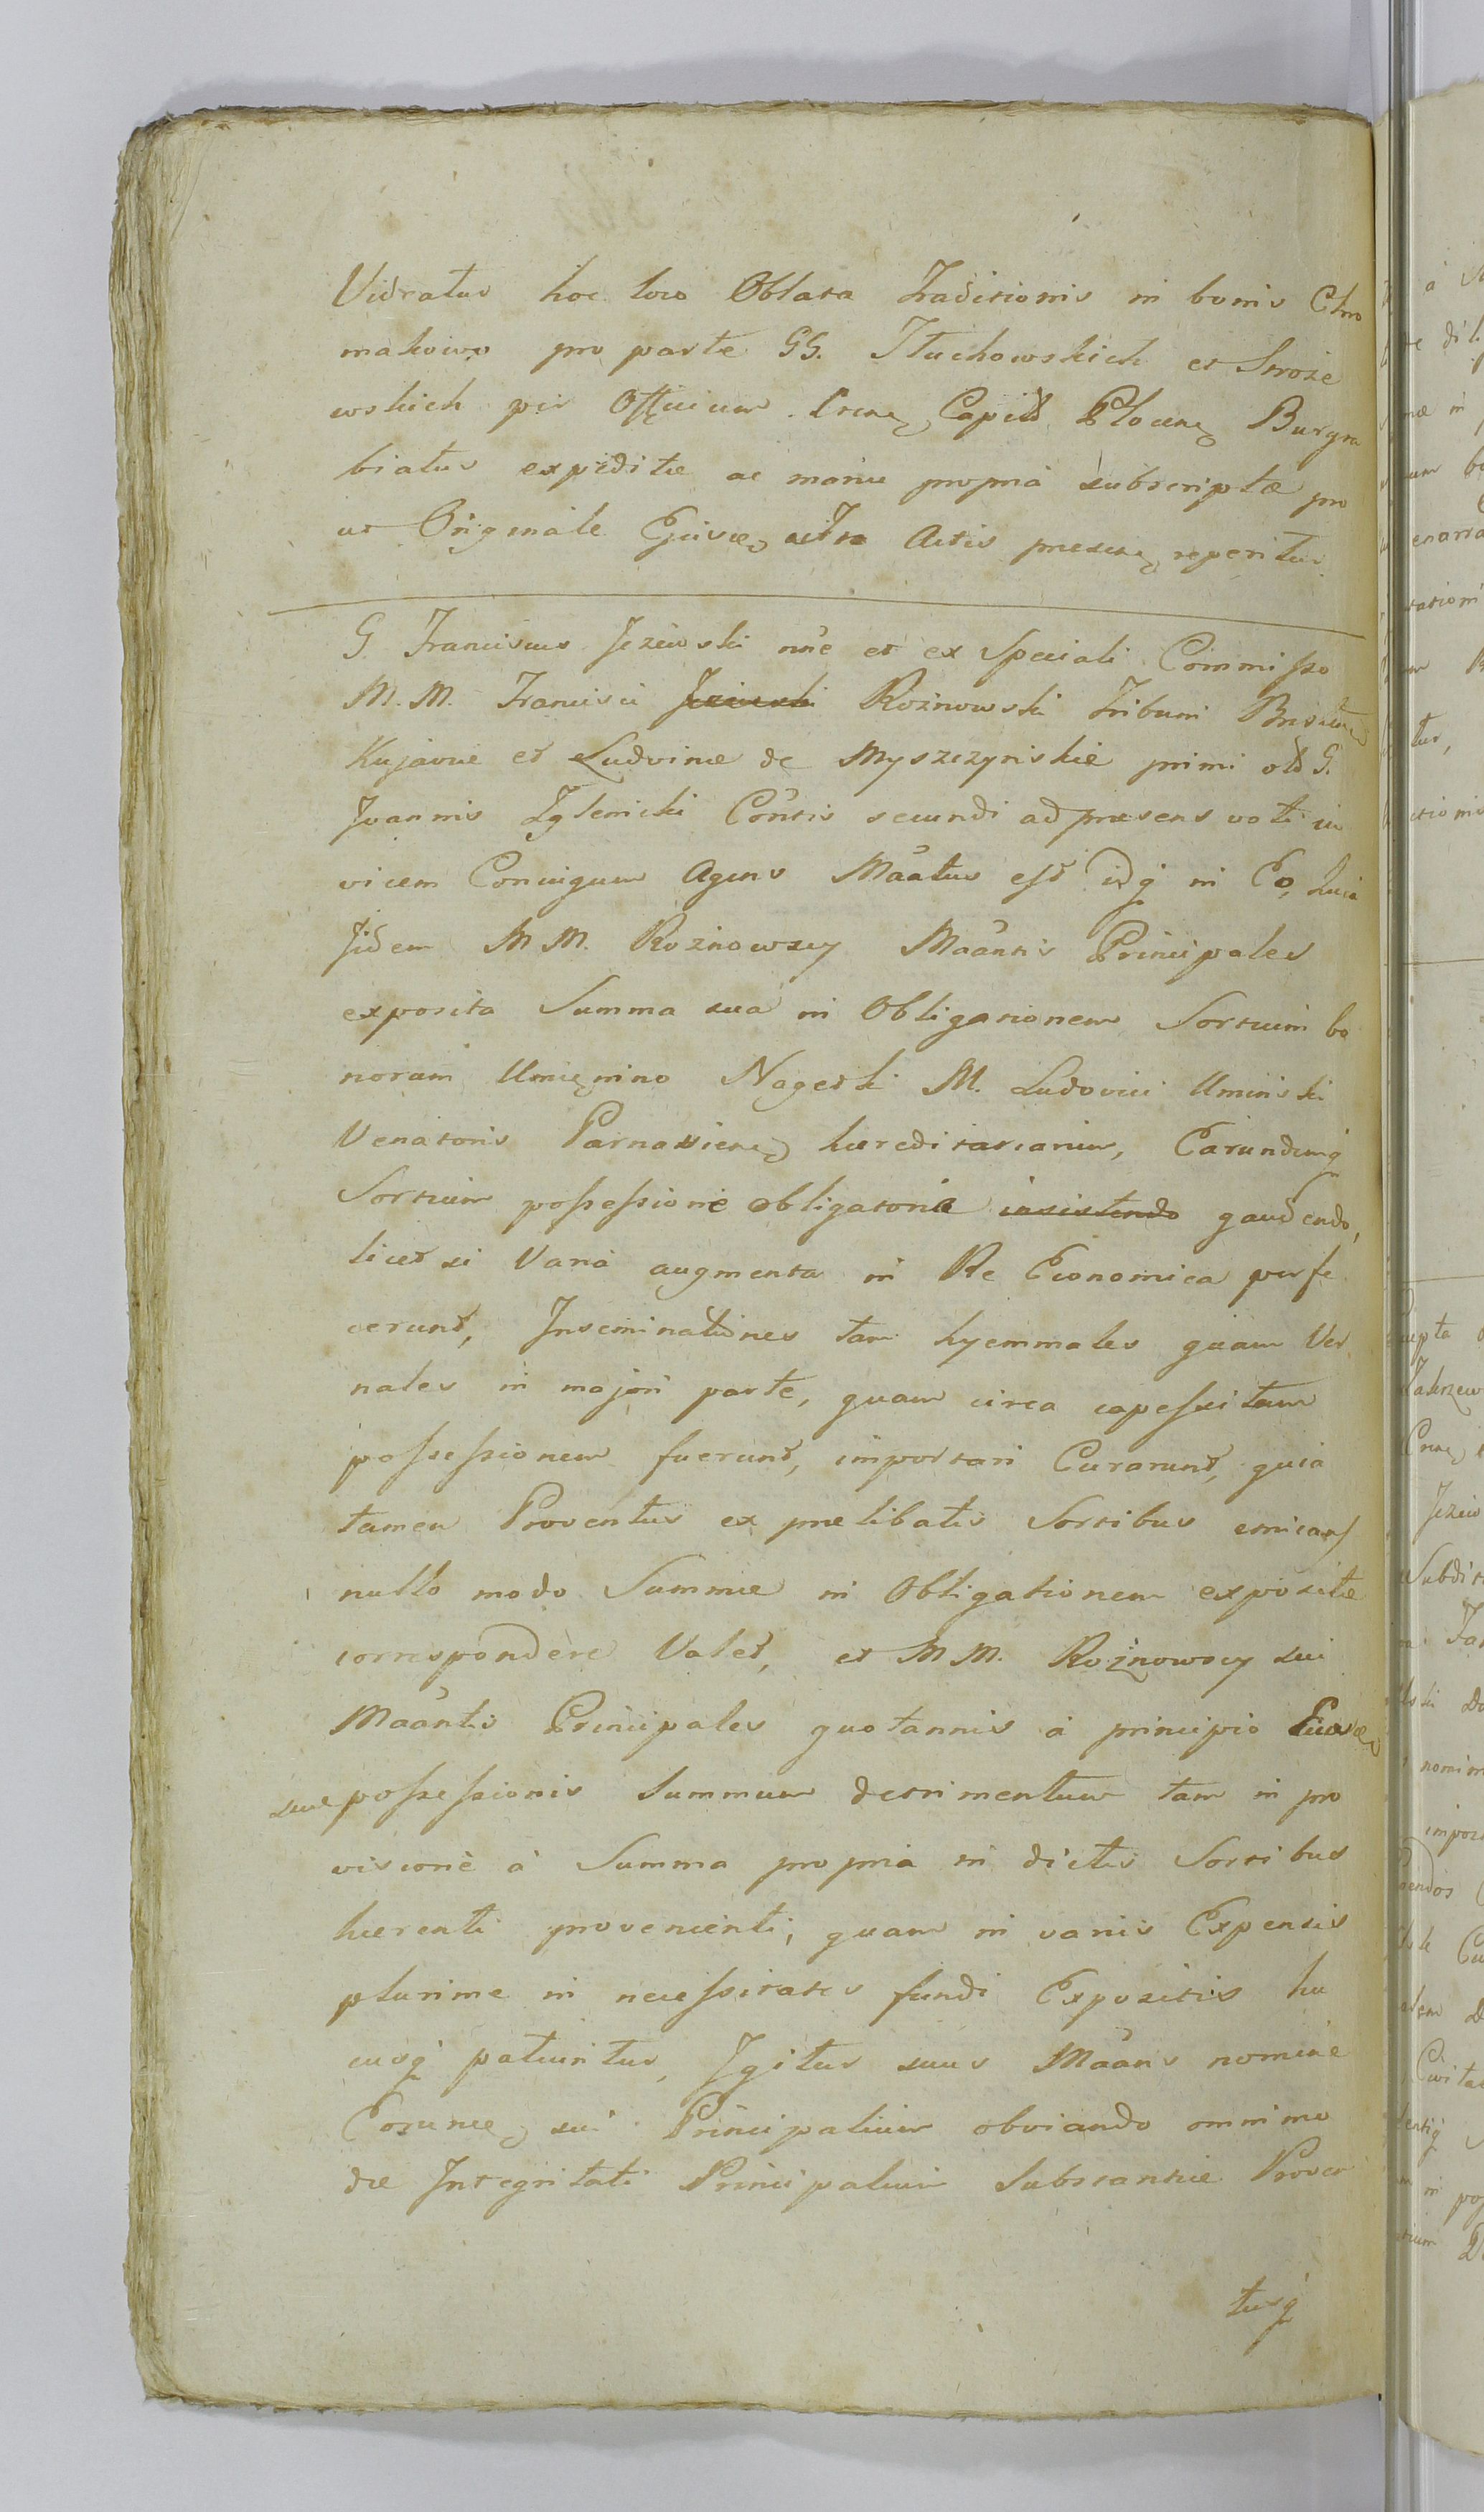 Videatur hoc loco Oblata Traditionis in bonis Chro
makowo pro parte GG. Tłuchowskich et Smrože
wskich per Officium Crens Capitł Plocens Burgra
biatus expeditæ ac manu propria subscriptæ pro
ut Originale Ejusce Actis præsens reperitur
G. Franciscus Jeżewski nñe et ex Speciali Commisso
M. M. Francisci Jeżewski Rożnowski Tribuni Brest
Kujaviæ et Ludvinæ de Myszczyńskie primi olt G.
Joannis Zglenicki Cóntis secundi ad præsens voti in
vicem Conjugum Agens Mãatus est idq̃ in Eo, Quia
Iidem M M. Rożnowscy Mãantis Principales
exposita Summa sua in Obligationem Sortium bo
norum Umięnino Nagetki M. Ludovici Umiński
Venatoris Parnaviens hæreditariarum, Earundemq̃
Sortium possessione obligatoria insistendo gaudendo,
licet si Varia augmenta in Re Economica perfe
cerunt, Inseminationes tam hyemmales quam Ver
nales in majori parte, quam circa capessitam
possessionem fuerunt, importari Curarunt, quia
tamen Proventus ex prælibatis Sortibus emicans
nullo modo Summæ in Obligationem expositæ
correspondere Valet, et M M. Rożnowscy sui
Mãantis Principales quotannis à principio
suæ possessionis Summum detrimentum tam in pro
visione à Summa propria in dictis Sortibus
hærenti provenienti, quam in variis Expensis
plurime in necessitates fundi Expositis hu
cusq̃ patiuntur, Igitur suus Mãans nomine
Eorunce sui Principalium obviando omnimo
dæ Integritati Principalium Substantiæ Proven
tusq̃